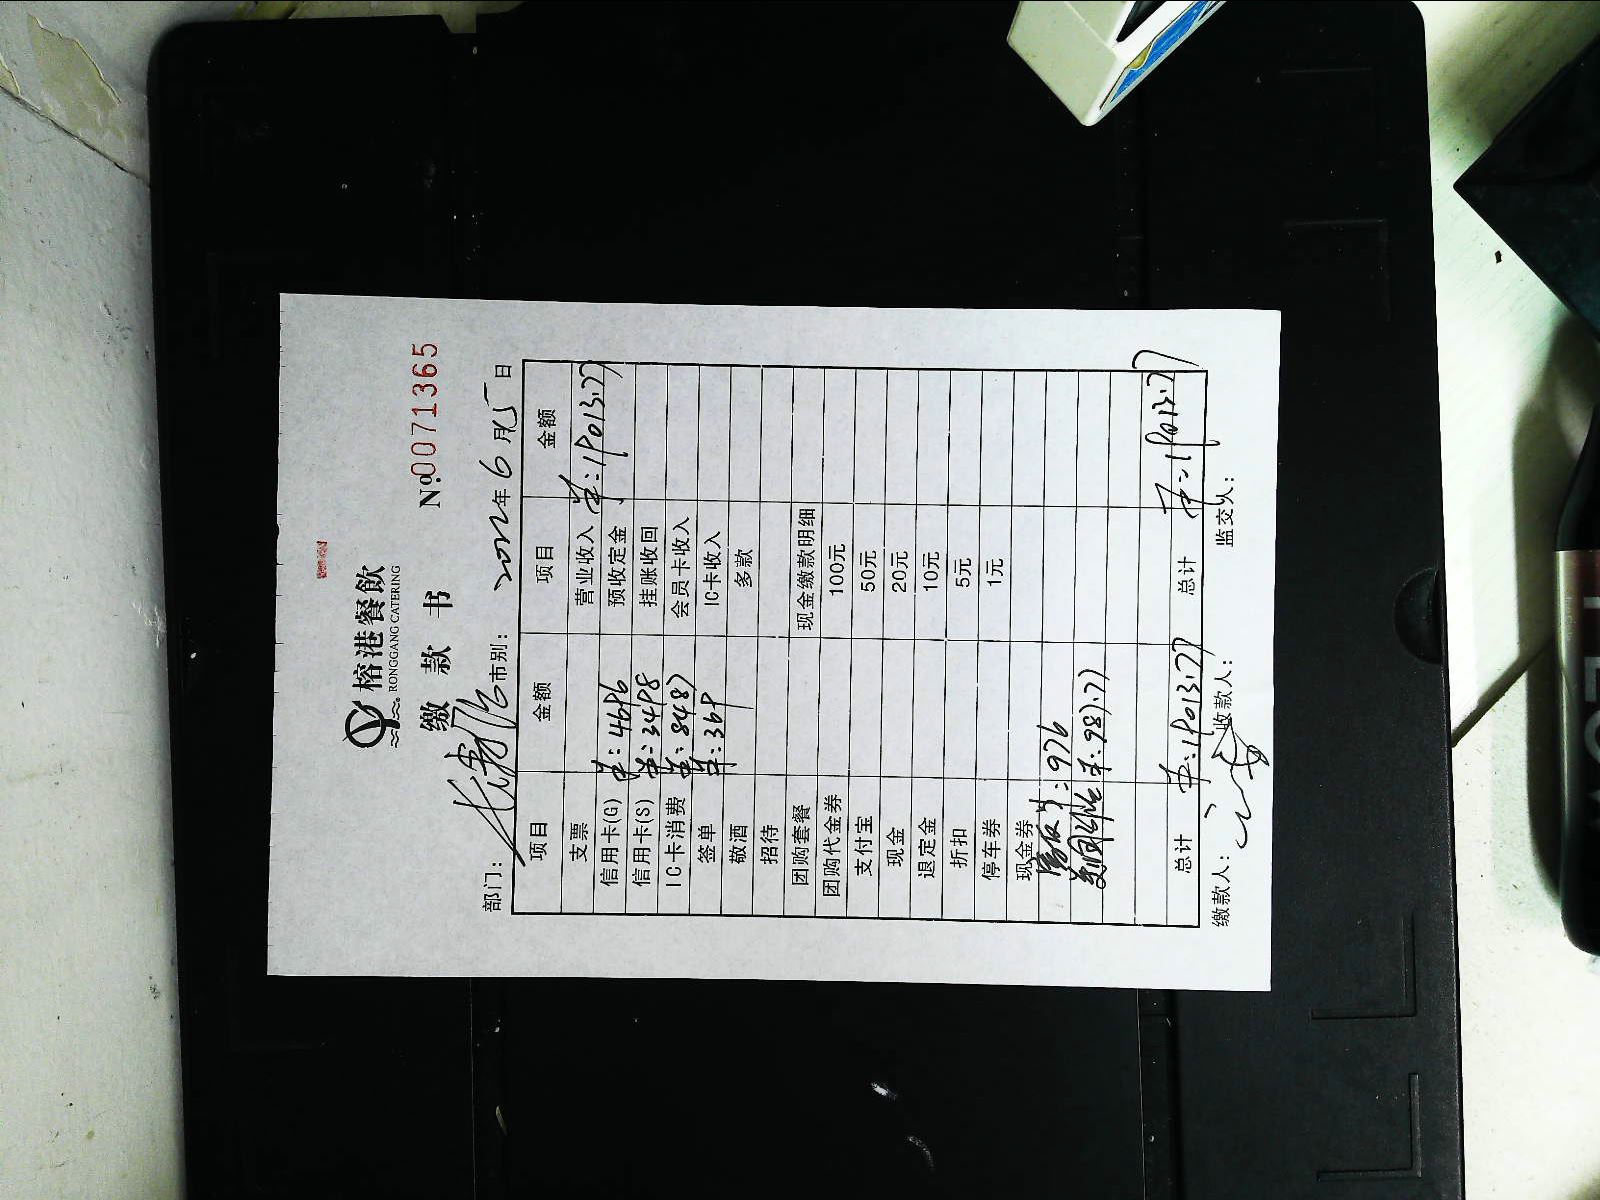 榕港餐飲
RONGGANG CATERING
缴 款 书
№.0071365
部门: 市别: 2022年6月5日
项目 金额 项目 金额
支票 营业收入 ¥:19013.77
信用卡(G) ¥:4696 预收定金
信用卡(S) ¥:3498 挂账收回
IC卡消费 ¥:8487 会员卡收入
签单 ¥:369 IC卡收入
敬酒 多款
招待
团购套餐 现金缴款明细
团购代金券 100元
支付宝 50元
现金 20元
退定金 10元
折扣 5元
停车券 1元
现金券
:976
美团 ¥:987.77
总计 ¥:19013.77 总计 ¥:19013.77
缴款人: 收款人: 监交人: